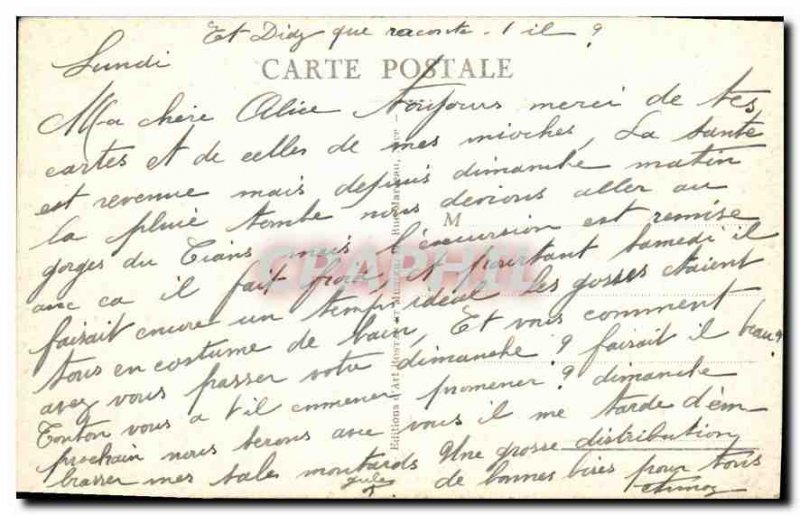 Et Didy que raconte-t il ?
Lundi
CARTE POSTALE
Ma chère Alice Toujours merci de tes
cartes et de celles de mes mioches, La santé
est revenue mais depuis dimanche matin
la pluie tombe nous devions aller au
M
gorges du Cians mais l'excursion est remise
avec ca il fait froid, et pourtant samedi il
faisait encore un temps ideal les gosses étaient
tous en costume de bain, Et vous comment
avez vous passer votre dimanche ? faisait il beau ?
Tonton vous a t'il emmener promener ? dimanche
prochain nous serons avec vous il me tarde d'em
brasser mes sales moutards Une grosse distribution
de bonnes bises pour tous
CPAPHIL
Editions d'Art